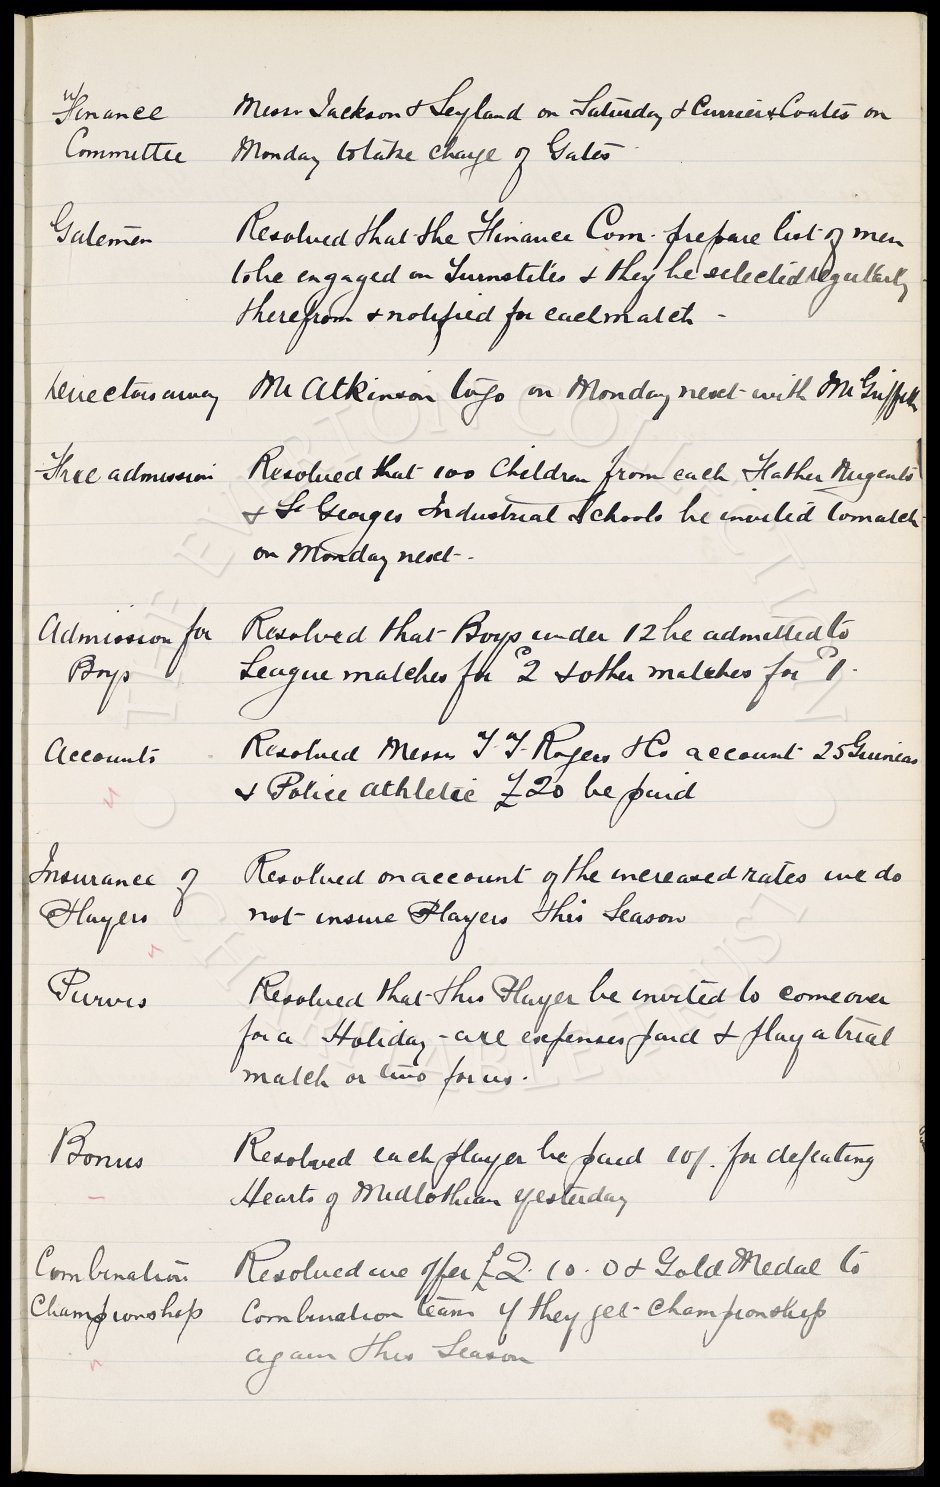 Finance Messrs Jackson & Leyland on Saturday & Currier & Coates on
Committee Monday to take charge of Gates
Gatemen Resolved that the Finance Com. prepare list of men
to be engaged on Turnstiles & they be selected regularly
therefrom & notified for each match -
Directors away Mr Atkinson to go on Monday next with Mr Griffiths
Free admission Resolved that 100 Children from each Father Nugents
& St Georges Industrial Schools be invited to match
on Monday next -
Admission for Resolved that Boys under 12 be admitted to
Boys League matches for 2d & other matches for 1d.
Accounts Resolved Messrs T. T. Rogers & Co account 25 Guineas
& Police Athletic £20 be paid
Insurance of Resolved on account of the increased rates we do
Players not insure Players this Season
Purves Resolved that this Player be invited to come over
for a Holiday - all expenses paid & play a trial
match or two for us.
Bonus Resolved each player be paid 10/. for defeating
Hearts of Midlothian yesterday
Combination Resolved we offer £2. 10. 0 & Gold Medal to
Championship Combination team if they get Championship
again this Season
THE EVERTON COLLECTION
CHARITABLE TRUST